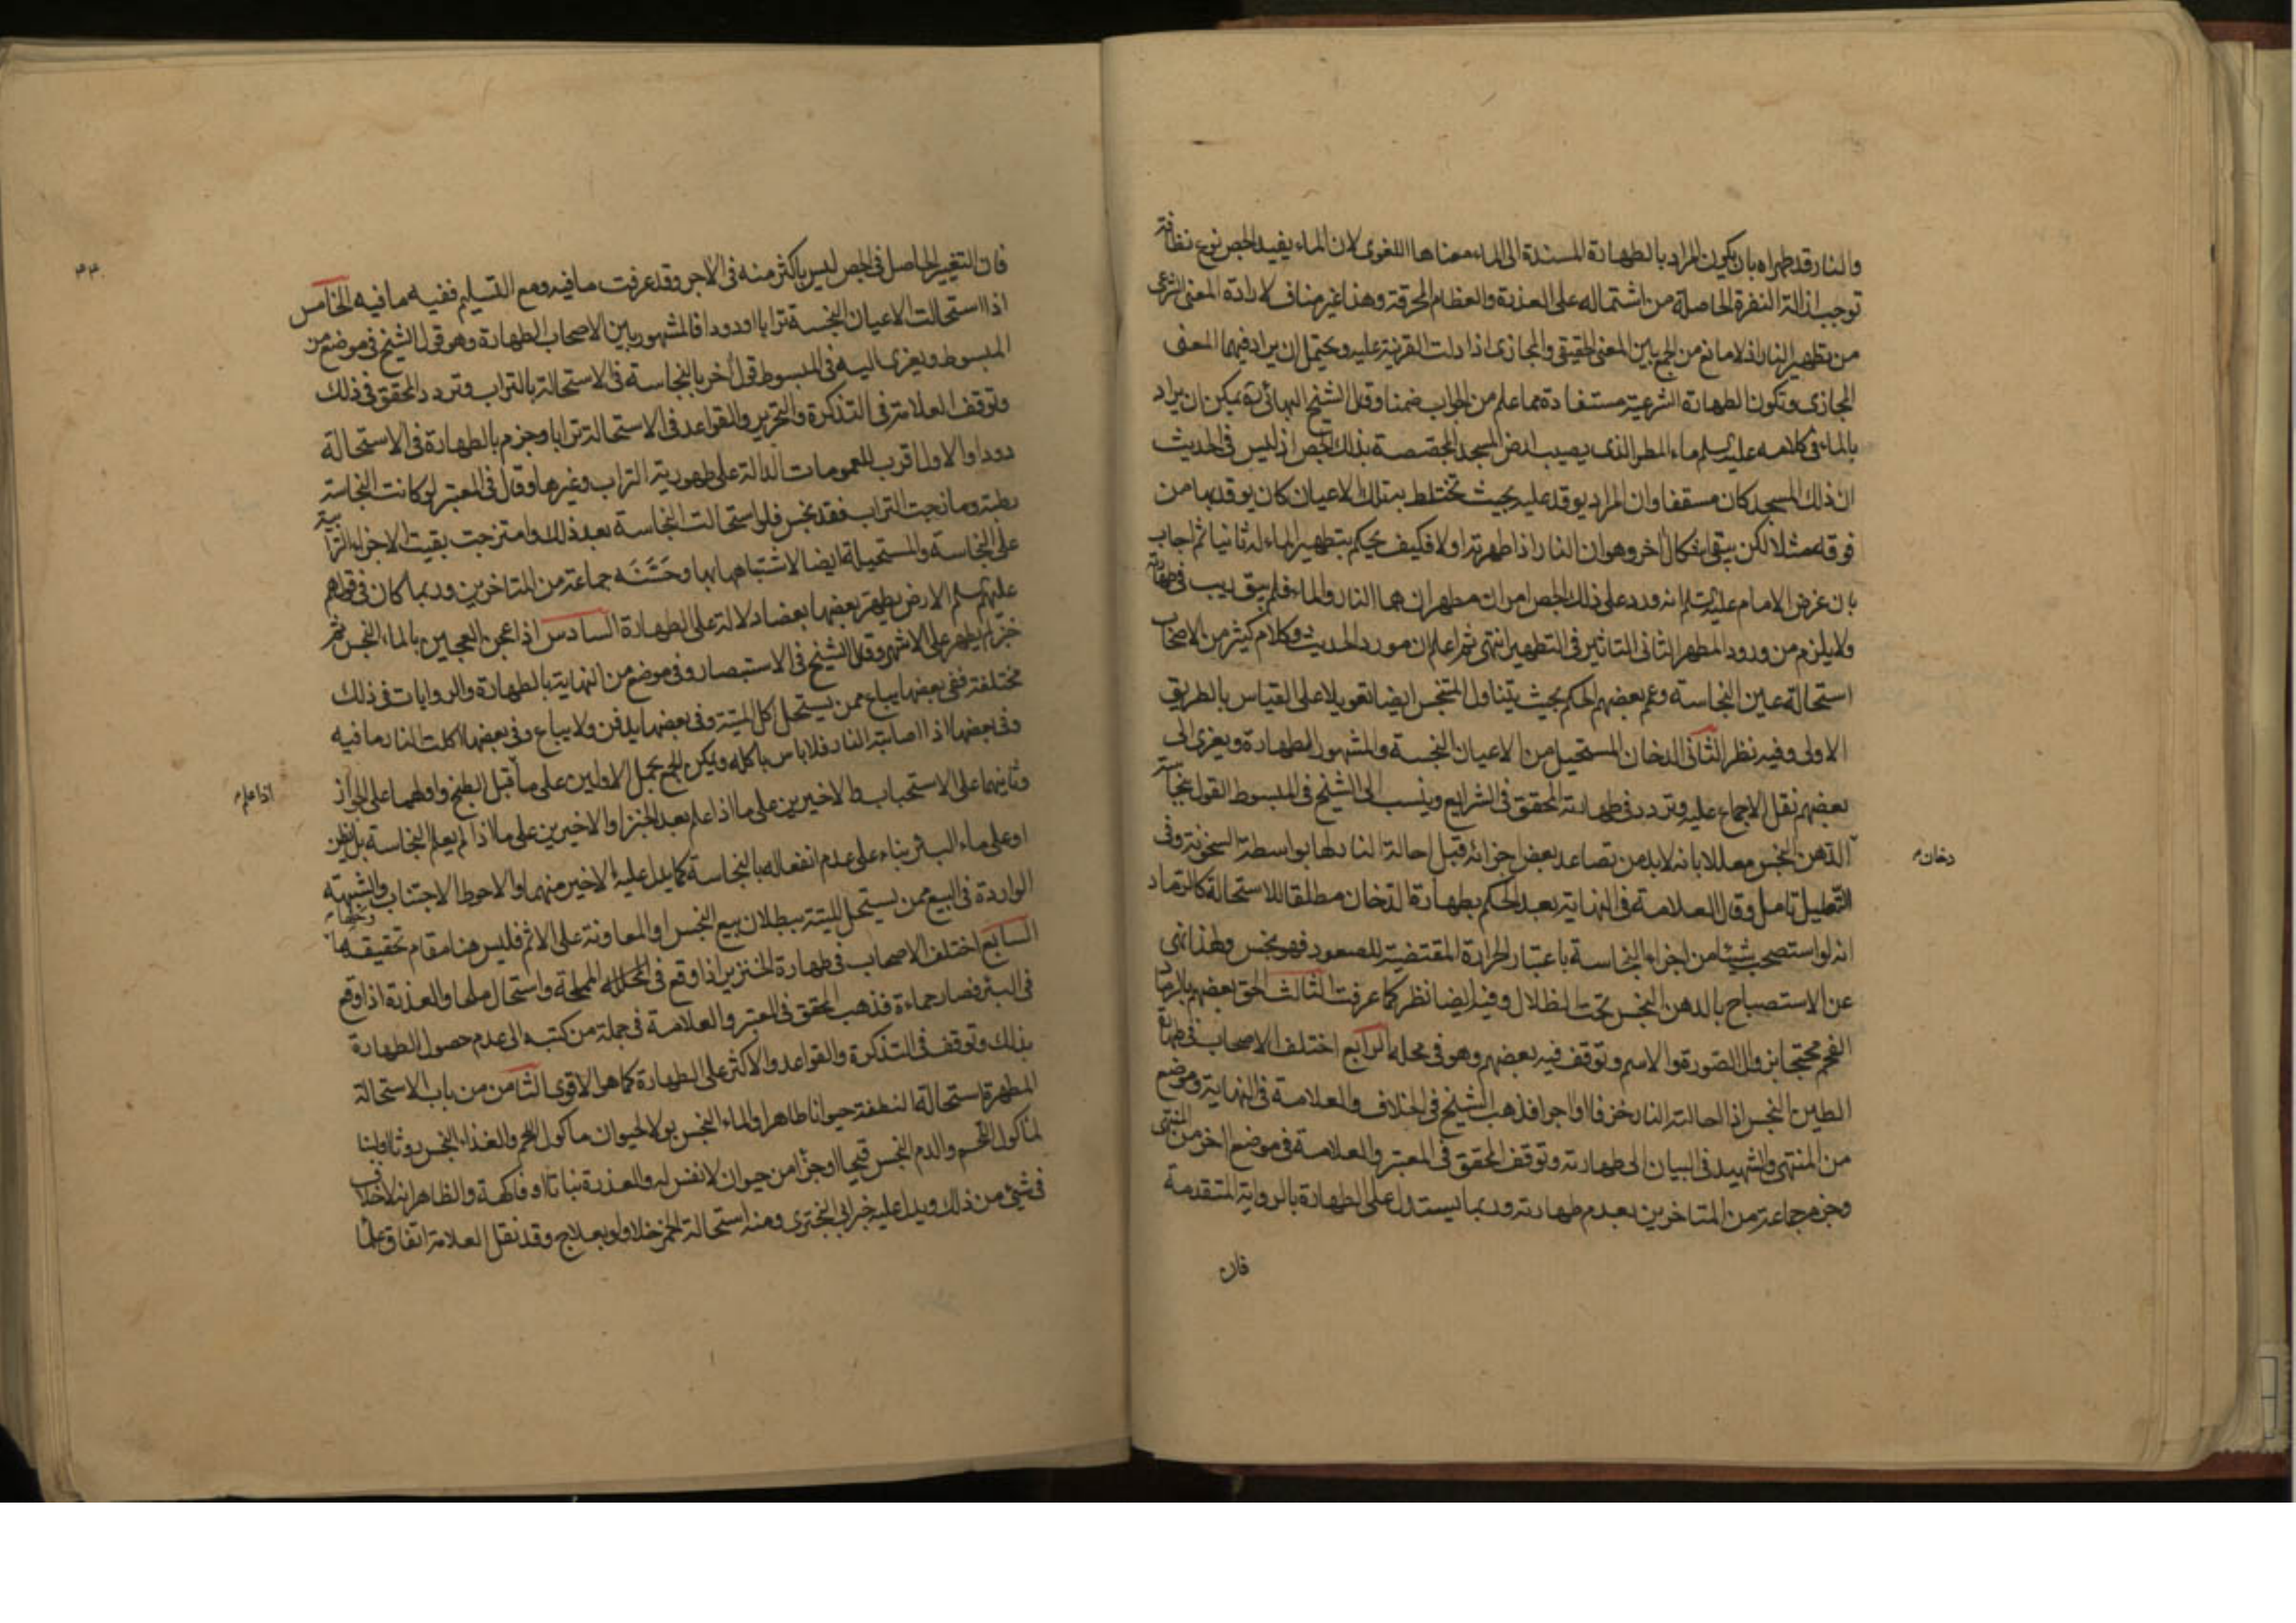 والنار قد طهراه بان يكون المراد بالطهارة المسندة الى الماء معناها اللغوى لان الماء يفيد الجص نوع نظافة
توجب ازالة النفرة الحاصلة من اشتماله على العذرة والعظام المحرقة وهذا غير مناف لارادة المعنى الشرعى
من تطهير النار اذ لا مانع من الجمع بين المعنى الحقيقى والمجازى اذا دلت القرينة عليه ويحتمل ان يراد فيهما المعنى
المجازى وتكون الطهارة الشرعية مستفادة مما علم من الجواب ضمنا وقال الشيخ البهائى ره يمكن ان يراد
بالماء فى كلامه عليه السلم ماء المطر الذى يصيب ارض المسجد المجصصة بذلك الجص اذ ليس فى الحديث
ان ذلك المسجد كان مسقفا وان المراد يوقد عليه بحيث تختلط بتلك الاعيان كان يوقد بها من
فوقه مثلا لكن يبقى اشكال اخر وهو ان النار اذا طهرته اولا فكيف يحكم بتطهير الماء له ثانيا ثم اجاب
بان غرض الامام عليه السلم انه ورد على ذلك الجص امران مطهران هما النار والماء فلم يبق ريب فى طهارته
ولا يلزم من ورود المطهر الثانى التاثير فى التطهير انتهى ثم اعلم ان مورد الحديث وكلام كثير من الاصحاب
استحالة عين النجاسة وعم بعضهم الحكم بحيث يتناول المتنجس ايضا تعويلا على القياس بالطريق
الاولى وفيه نظر الثانى الدخان المستحيل من الاعيان النجسة والمشهور الطهارة ويعزى الى
بعضهم نقل الاجماع عليه وتردد فى طهارته المحقق فى الشرايع وينسب الى الشيخ فى المبسوط القول بنجاسة
دخان
الدهن النجس معللا بانه لابد من تصاعد بعض اجزائه قبل احالة النار لها بواسطة السخونة وفى
التعليل تامل وقال العلامة فى النهاية بعد الحكم بطهارة الدخان مطلقا للاستحالة كالرماد
انه لو استصحب شيئا من اجزاء النجاسة باعتبار الحرارة المقتضية للصعود فهو نجس ولهذا نهى
عن الاستصباح بالدهن النجس تحت الظلال وفيه ايضا نظر كما عرفت الثالث الحق بعضهم بالرماد
الفحم محتجا بزوال الصورة والاسم وتوقف فيه بعضهم وهو فى محله الرابع اختلف الاصحاب فى طهارة
الطين النجس اذا احالته النار خزفا او اجرا فذهب الشيخ فى الخلاف والعلامة فى النهاية وموضع
من المنتهى والشهيد فى البيان الى طهارته وتوقف المحقق فى المعتبر والعلامة فى موضع اخر من المنتهى
وجزم جماعة من المتاخرين بعدم طهارته وربما يستدل على الطهارة بالرواية المتقدمة
فان
فان التغيير الحاصل فى الجص ليس باكثر منه فى الاجر وقد عرفت ما فيه ومع التسليم ففيه ما فيه الخامس
اذا استحالت الاعيان النجسة ترابا او دودا فالمشهور بين الاصحاب الطهارة وهو قول الشيخ فى موضع من
المبسوط ويعزى اليه فى المبسوط قول اخر بالنجاسة فى الاستحالة بالتراب وتردد المحقق فى ذلك
وتوقف العلامة فى التذكرة والتحرير والقواعد فى الاستحالة ترابا وجزم بالطهارة فى الاستحالة
دودا والاول اقرب للعمومات الدالة على طهورية التراب وغيرها وقال فى المعتبر لو كانت النجاسة
رطبة ومازجت التراب فقد نجس فلو استحالت النجاسة بعد ذلك وامتزجت بقيت الاجزاء الترابية
على النجاسة والمستحيلة ايضا لاشتباهها بها وحسنه جماعة من المتاخرين وربما كان فى قولهم
عليهم السلم الارض يطهر بعضها بعضا دلالة على الطهارة السادس اذا عجن العجين بالماء النجس ثم
خبز لم يطهر على الاشهر وقال الشيخ فى الاستبصار وفى موضع من النهاية بالطهارة والروايات فى ذلك
مختلفة ففى بعضها يباع ممن يستحل اكل الميتة وفى بعضها يدفن ولا يباع وفى بعضها اكلت النار ما فيه
وفى بعضها اذا اصابته النار فلا باس باكله ويمكن الجمع بحمل الاولين على ما قبل الطبخ واولهما على الجواز
اذا علم
وثانيهما على الاستحباب والاخيرين على ما اذا علم بعد الخبز او الاخيرين على ما اذا لم يعلم النجاسة بل يظن
او على ماء البئر بناء على عدم انفعاله بالنجاسة كما يدل عليه الاخير منهما والاحوط الاجتناب والشبهة
الواردة فى البيع ممن يستحل الميتة ببطلان بيع النجس او المعاونة على الاثم فليس هنا مقام تحقيقها
السابع اختلف الاصحاب فى طهارة الخنزير اذا وقع فى المملحة واستحال ملحا والعذرة اذا وقع
فى البئر فصار حماءة فذهب المحقق فى المعتبر والعلامة فى جملة من كتبه الى عدم حصول الطهارة
بذلك وتوقف فى التذكرة والقواعد والاكثر على الطهارة كما هو الاقوى الثامن من باب الاستحالة
المطهرة استحالة النطفة حيوانا طاهرا والماء النجس بولا لحيوان ماكول اللحم والغذاء النجس روثا او لبنا
لماكول اللحم والدم النجس قيحا او جزءا من حيوان لا نفس له والعذرة نباتا او فاكهة والظاهر انه لا خلاف
فى شئ من ذلك ويدل عليه خبر ابى البخترى ومنه استحالة الخمر خلا ولو بعلاج وقد نقل العلامة اتفاق علما